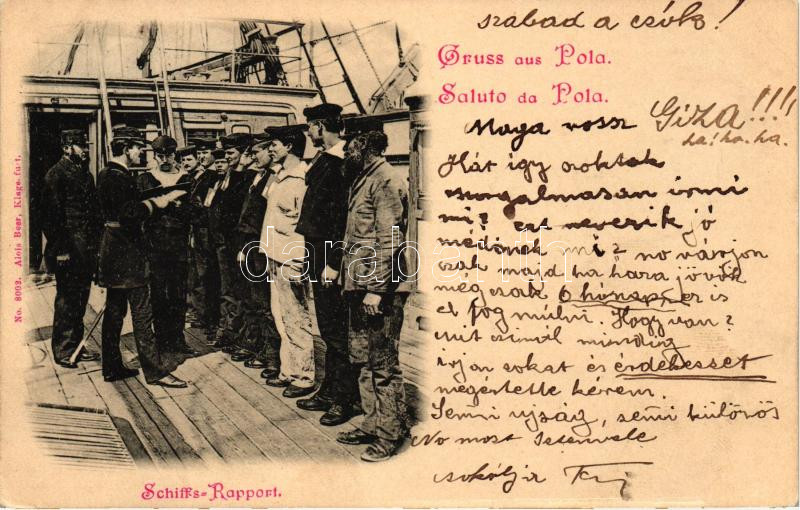 szabad a csók!
Gruss aus Pola.
Saluto da Pola.
Maga rossz Giza!!!!
ha! ha. ha.
Hát így szoktak
szorgalmasan írni
mi? ezt nevezik jó
módinek mi? no várjon
csak majd ha haza jövök
még csak 6 hónap, ez is
el fog múlni. Hogy van?
mit csinál mindig
írjon sokat és érdekesset
megértette kérem.
Semmi ujság, semmi különös
No most Istenvele
csókolja
No. 8092. Alois Beer, Klagenfurt.
Schiffs-Rapport.
darabanth